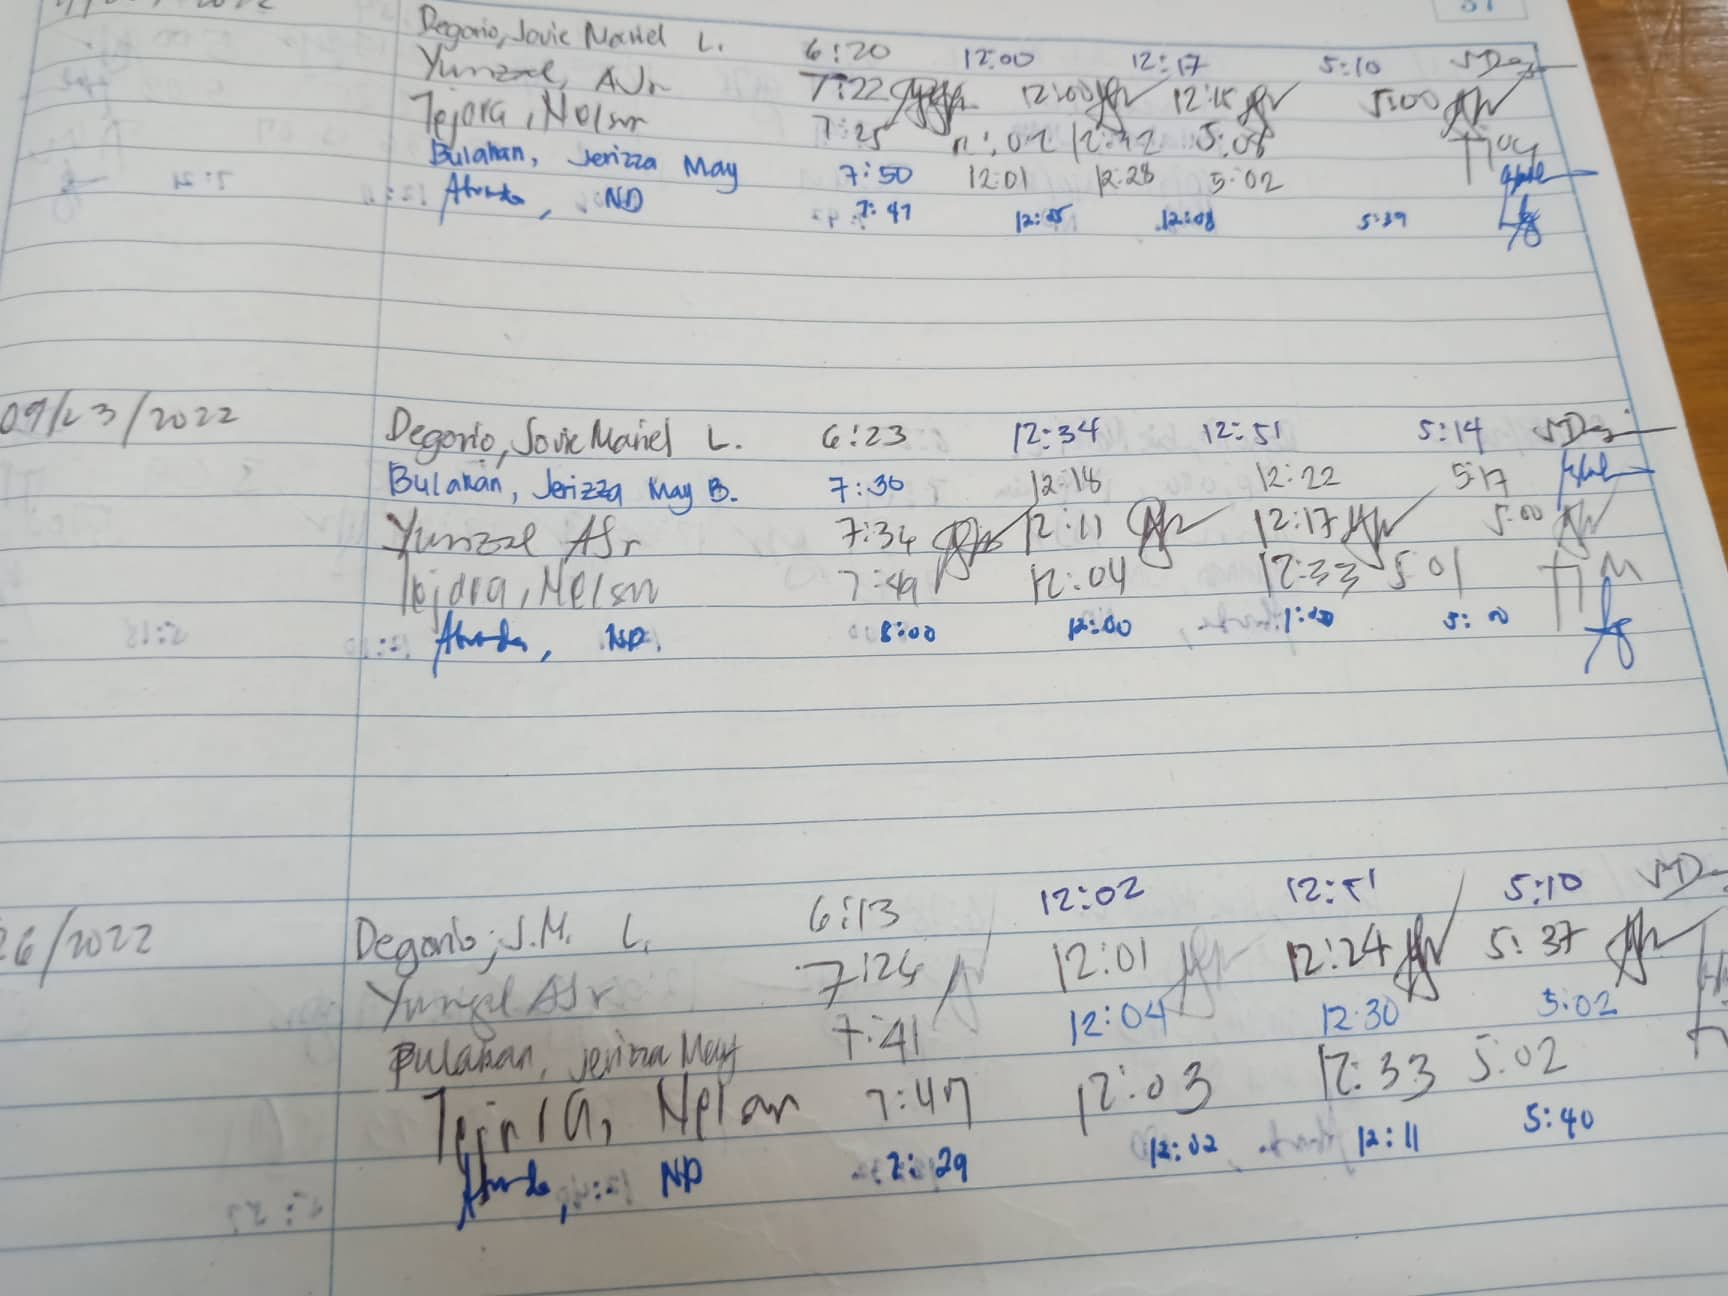 2022
Degorio, Jovie Mariel L. 6:20 12:00 12:17 5:10
Yunzal, AJr 7:22 12:00 12:15 5:00
Tejora, Nelson 7:25 12:02 12:32 5:08
Bulahan, Jerizza May 7:50 12:01 12:28 5:02
ND 7:47 12:05 12:08 5:39
09/23/2022 Degorio, Jovie Mariel L. 6:23 12:34 12:51 5:14
Bulahan, Jerizza May B. 7:30 12:18 12:22 5:17
Yunzal AJr 7:34 12:11 12:17 5:00
Tejora, Nelson 7:49 12:04 12:33 5:01
ND. 8:00 12:00 1:00 5:00
26/2022 Degorio, J.M. L. 6:13 12:02 12:51 5:10
Yunzal AJr 7:24 12:01 12:24 5:37
Bulahan, Jerizza May 7:41 12:04 12:30 5:02
Tejora, Nelson 7:47 12:03 12:33 5:02
ND 7:29 12:02 12:11 5:40